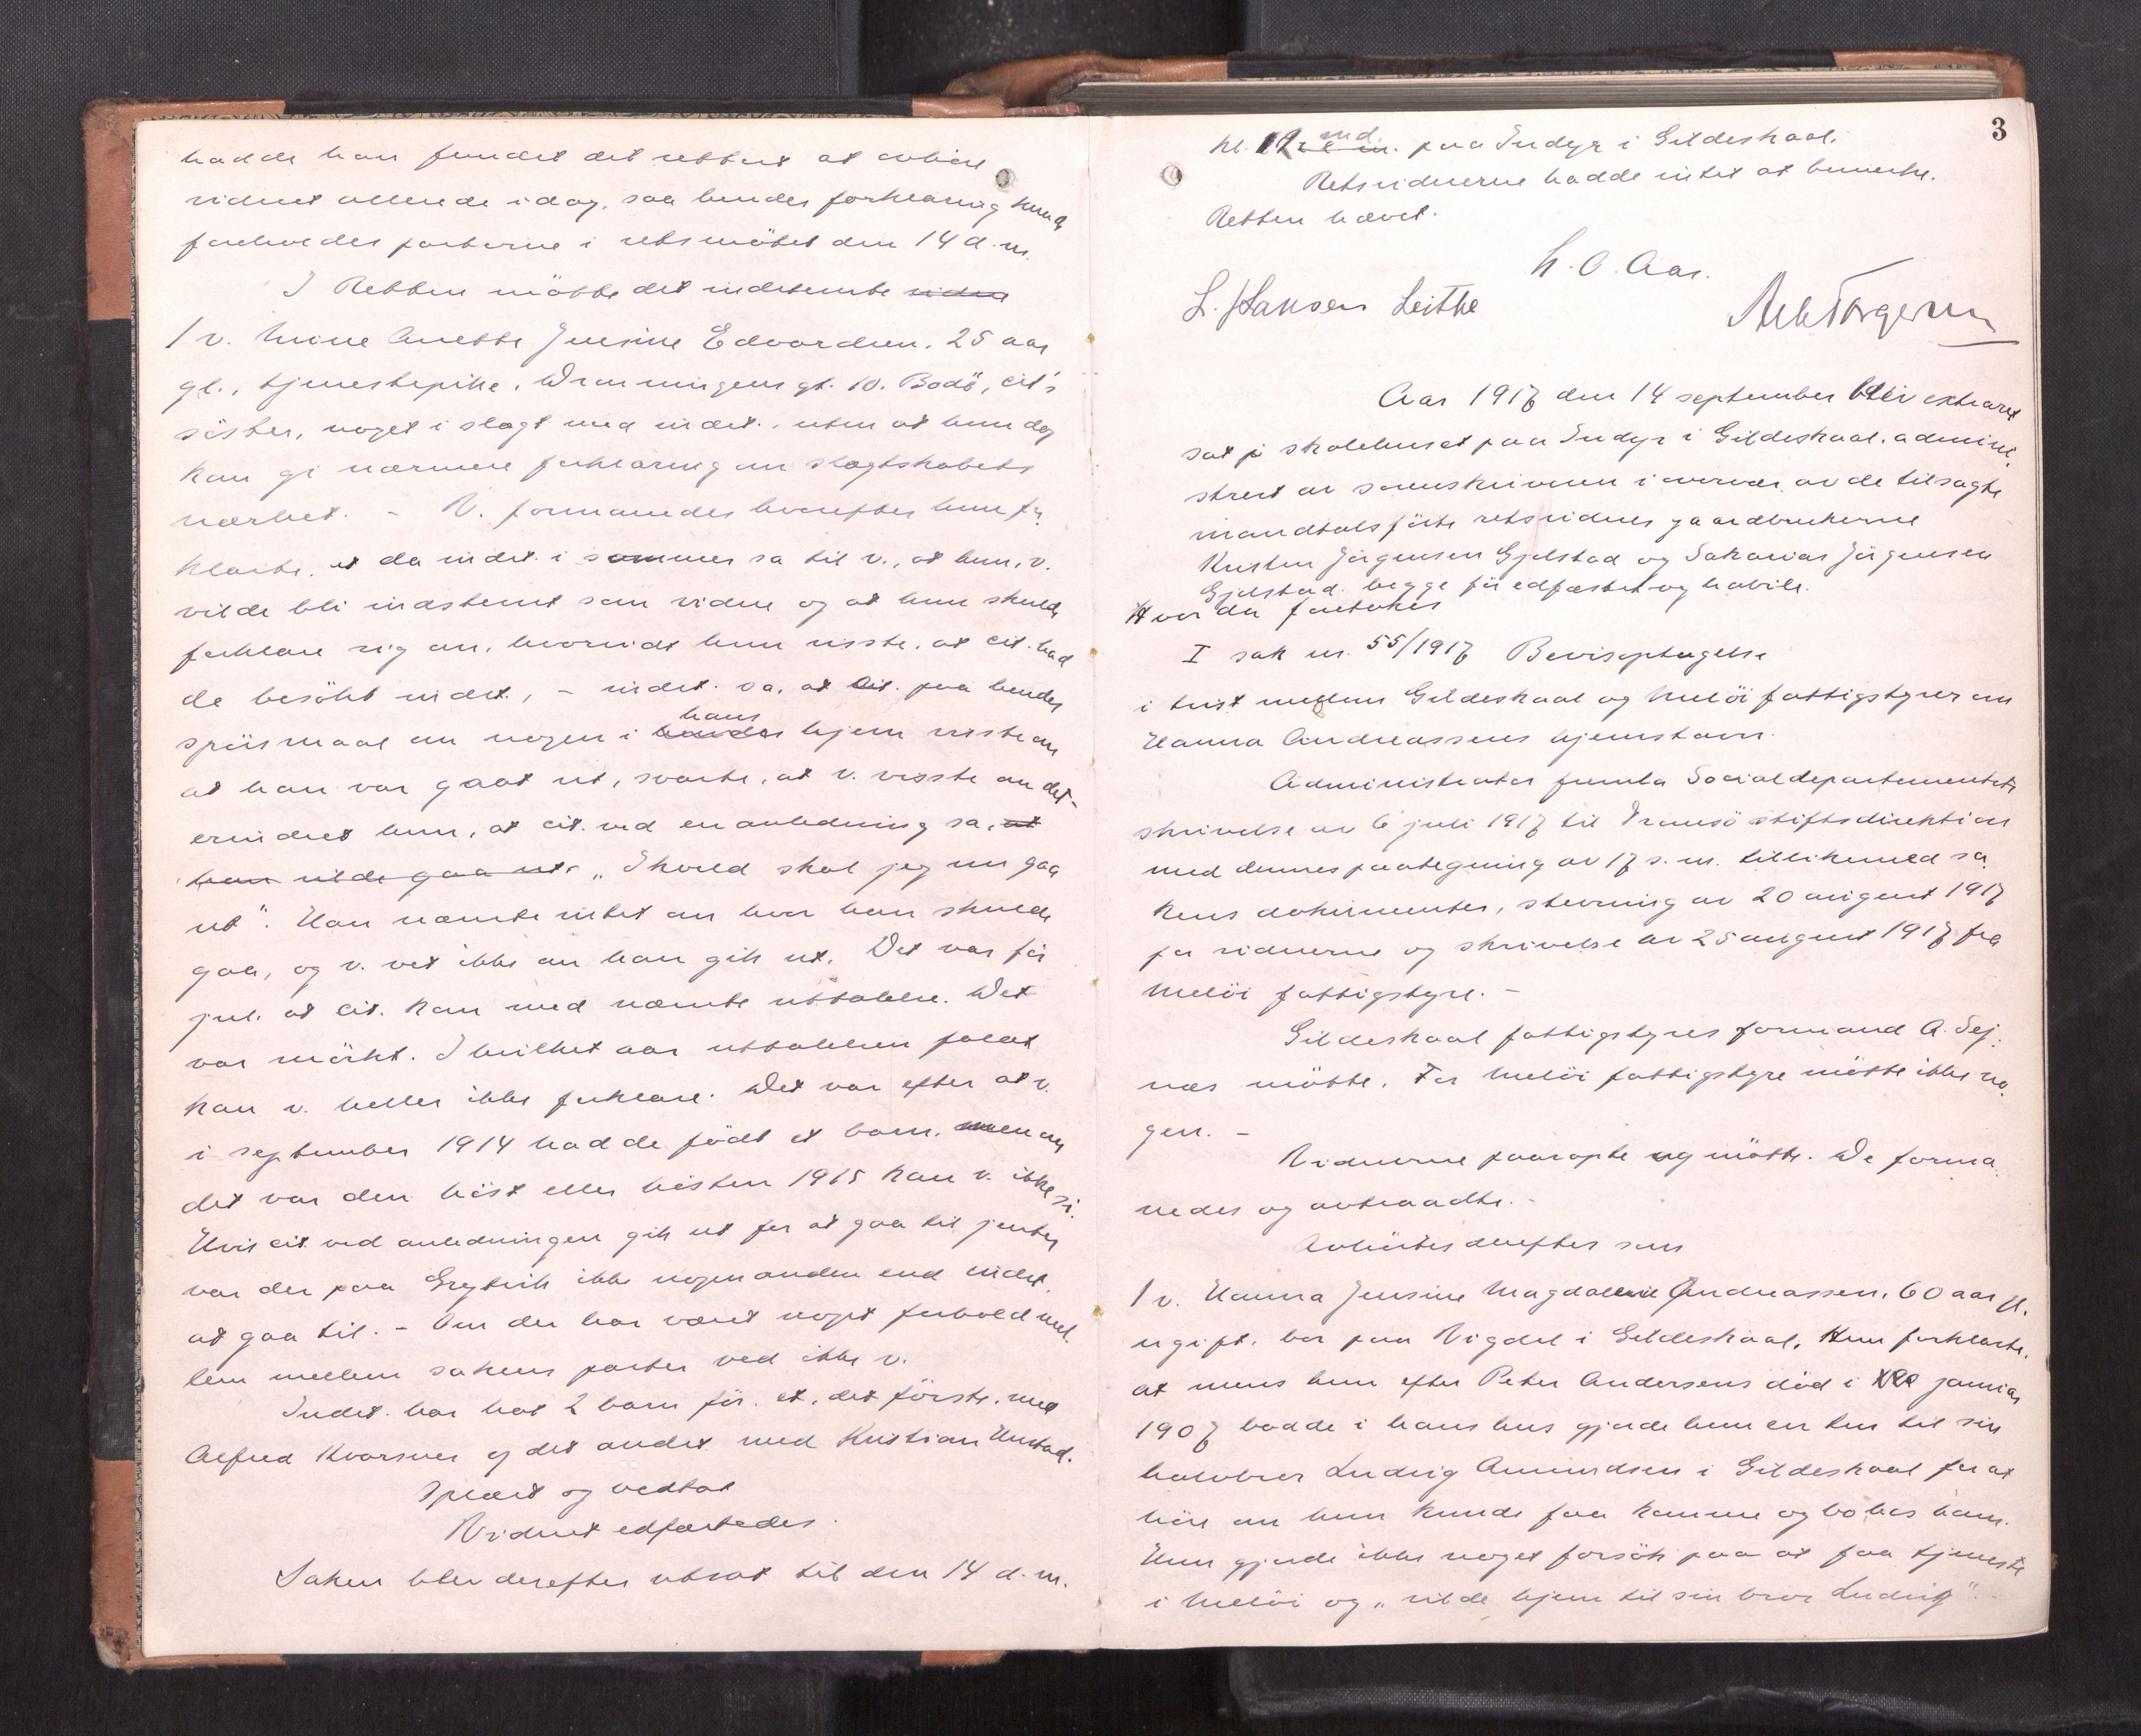 hadde han fundet det rettest at avhöre
vidnet allerede idag, saa hendes forklaring kunde
foreholdes parterne i retsmötet den 14 d. m.
I Retten mötte det indstevnte vidne
1 v. Mine Anette Jensine Edvardsen, 25 aar
gl., tjenestepike, Dronningens gt. 10. Bodö, cit's
söster, noget i slegt med indst., uten at hun dog
kan gi nærmere forklaring om slegtskabets
nærhet. - V. formanedes hvorefter hun for
klarte, at da indst. i sommer sa til v., at hun, v.
vilde bli indstevnt som vidne og at hun skulde
forklare sig om, hvorvidt hun visste, at cit. had
de besökt indst., - indst. sa, at cit. paa hendes
spörsmaal om nogen i hans hjem visste om
at han var gaat ut, svarte, at v. visste om det -
erindret hun, at cit. ved en anledning sa, at
han vilde gaa ut. "I kveld skal jeg nu gaa
ut". Han nævnte intet om hvor han skulde
gaa, og v. vet ikke om han gik ut. Det var för
jul. at cit. kom med nævnte uttalelse. Det
var mörkt. I hvilket aar uttalelsen faldt
kan v. heller ikke forklare. Det var efter at v.
i september 1914 hadde födt et barn, men om
det var den höst eller hösten 1915 kan v. ikke si.
Hvis cit. ved anledningen gik ut for at gaa til jenter
var der paa ikke nogen anden end indst.
at gaa til. - Om der har været noget forhold mel
lem mellem sakens parter ved ikke v.
Indst. har hat 2 barn för. et, det förste, med
Alfred Kvarsnes og det andet med Kristian Unstad.
Oplæst og vedtat
Vidnet edfæstedes.
Saken blev derefter utsat til den 14 d. m.
3
kl. 12 md. paa Indyr i Gildeskaal.
Retsvidnerne hadde intet at bemerke.
Retten hævet.
H. O. Aas.
L. Hansen Leithe
Aar 1917 den 14 september blev extraret
sat på skolehuset paa Indyr i Gildeskaal, admini
strert av sorenskriveren i overvær av de tilsagte
mandtalsförte retsvidner gaardbrukerne
Kristen Jörgensen Gjelstad og Sakarias Jörgensen
Gjelstad, begge för edfæstet og habile.
Hvor da foretokes
I sak nr. 55/1917 Bevisoptagelse
i tvist mellem Gildeskaal og Melöi fattigstyrer om
Hanna Andreassens hjemstavn.
Administrator fremla Socialdepartementets
skrivelse av 6 juli 1917 til Tromsö stiftsdirektion
med dennes paategning av 17 s. m. tillikemed sa
kens dokumenter, stevning av 20 august 1917
for vidnerne og skrivelse av 25 august 1917 fra
Melöi fattigstyre. -
Gildeskaal fattigstyres formand A. Sej
næs mötte. For Melöi fattigstyre mötte ikke no
gen. -
Vidnerne paaropte og mötte. De forma
nedes og avtraadte. -
Avhörtes derefter som
1 v. Hanna Jensine Magdalene Andreassen, 60 aar gl.
ugift, bor paa Vigdel i Gildeskaal. Hun forklarte,
at mens hun efter Peter Andersens död i januar
1907 bodde i hans hus gjorde hun en tur til sin
halvbror Ludvig Amundsen i Gildeskaal for at
höre om hun kunde faa komme og bo hos ham.
Hun gjorde ikke noget forsök paa at faa tjeneste
i Melöi og "vilde hjem til sin bror Ludvig". -